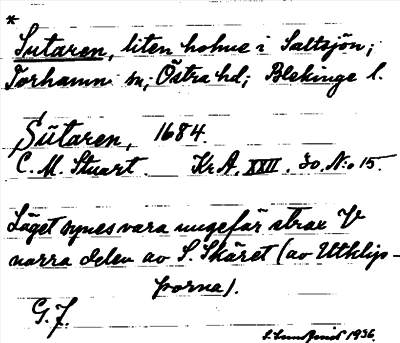 *
Sutaren, liten holme i Saltsjön;
Torhamn sn; Östra hd; Blekinge l.
Sütaren, 1684.
C. M. Stuart. Kr.A. XXII. 30. N:o 15.
Läget synes vara ungefär strax V
norra delen av S. Skäret (av Utklip-
porna).
G. J.
1936.